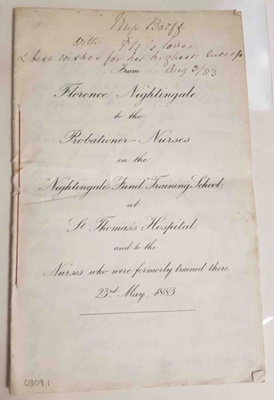 Miss
with 's love
& best wishes for her highest success
From Aug 3/83
Florence Nightingale
to the
Probationer-Nurses
in the
"Nightingale Fund" Training School,
at
St Thomas's Hospital,
and to the
Nurses who were formerly trained there.
23rd May, 1883
0809.1